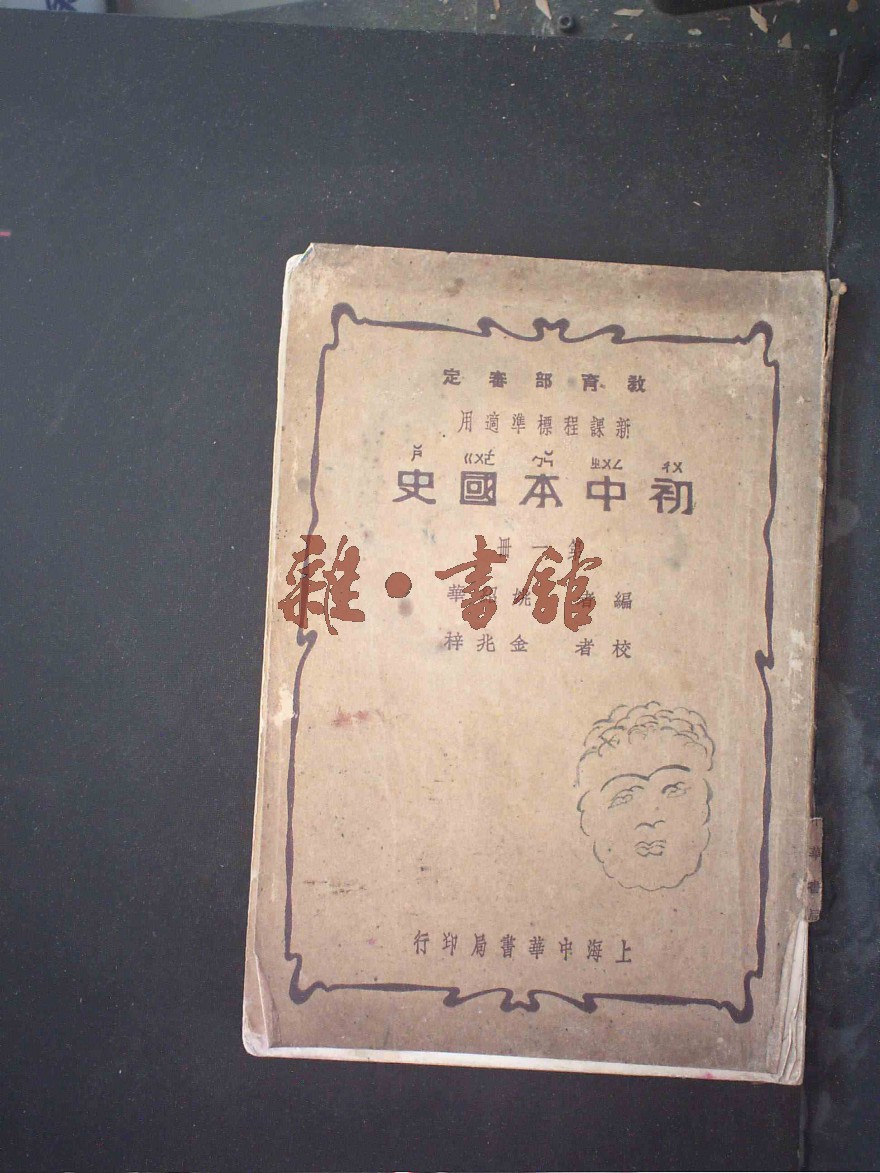 教育部審定
新課程標準適用
ㄔㄨ ㄓㄨㄥ ㄅㄣˇ ㄍㄨㄛˊ ㄕˇ
初中本國史
第一冊
編者 姚紹華
校者 金兆梓
上海中華書局印行
雜·書館
華書局